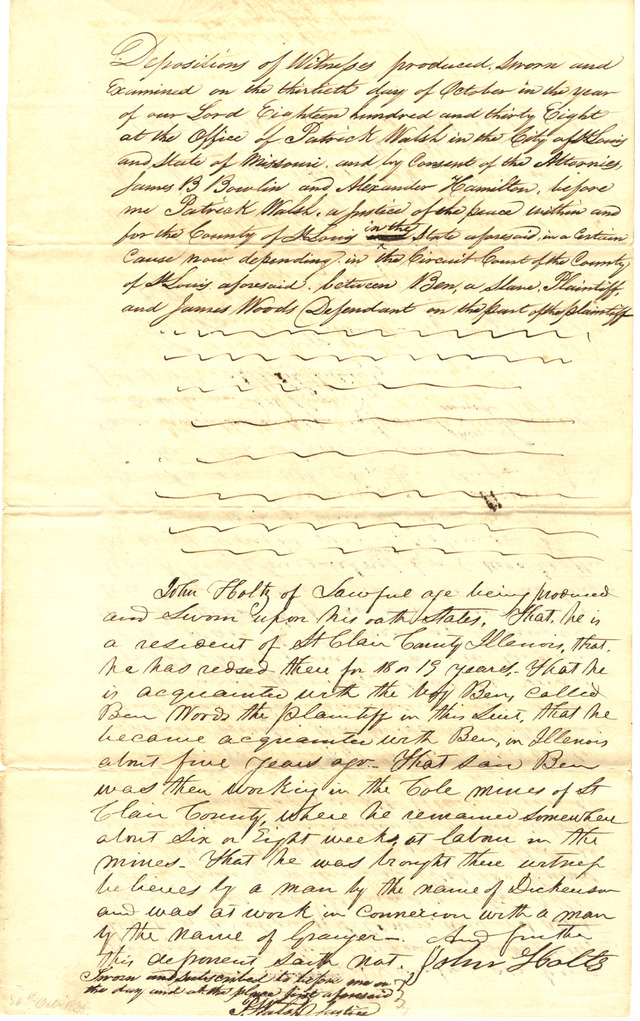 Depositions of Witnesses produced, sworn and
Examined on the thirtieth day of October in the year
of our Lord Eighteen hundred and thirty Eight
at the Office of Patrick Walsh in the City of St Louis
and State of Missouri, and by Consent of the Attornies,
James B Bowlin and Alexander Hamilton, before
me Patrick Walsh, a Justice of the peace within and
for the County of St Louis in the State aforesaid, in a Certain
Cause now depending in the Circuit Court of the County
of St Louis aforesaid, between Ben, a Slave, Plaintiff,
and James Woods Defendant on the part of the plaintiff
John Holtz of Lawful age being produced
and Sworn upon his oath States, That he is
a resident of St Clair County Illinois, that
he has resded there for 18 or 19 years. That he
is acquainted with the boy Ben, called
Ben Woods the plaintiff in this Suit, that he
became acquainted with Ben, in Illinois
about five years ago - That said Ben
was then working in the Cole mines of St
Clair County, where he remained somewhere
about Six or Eight weeks, at labour in the
mines - That he was brought there witness
believes by a man by the name of Dickenson
and was at work in connexion with a man
by the name of Granger -. And further
this deponent saith not. John Holtz
Sworn and subscribed to before me on
the day and at the place first aforesaid
P. Walsh Justice